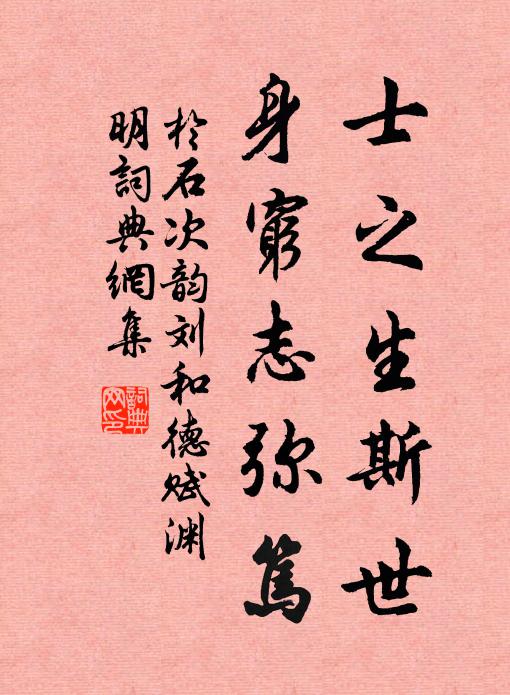 士之生斯世
身穷志弥笃
於石次韵刘和德赋渊
明詞典網集
詞典
网印